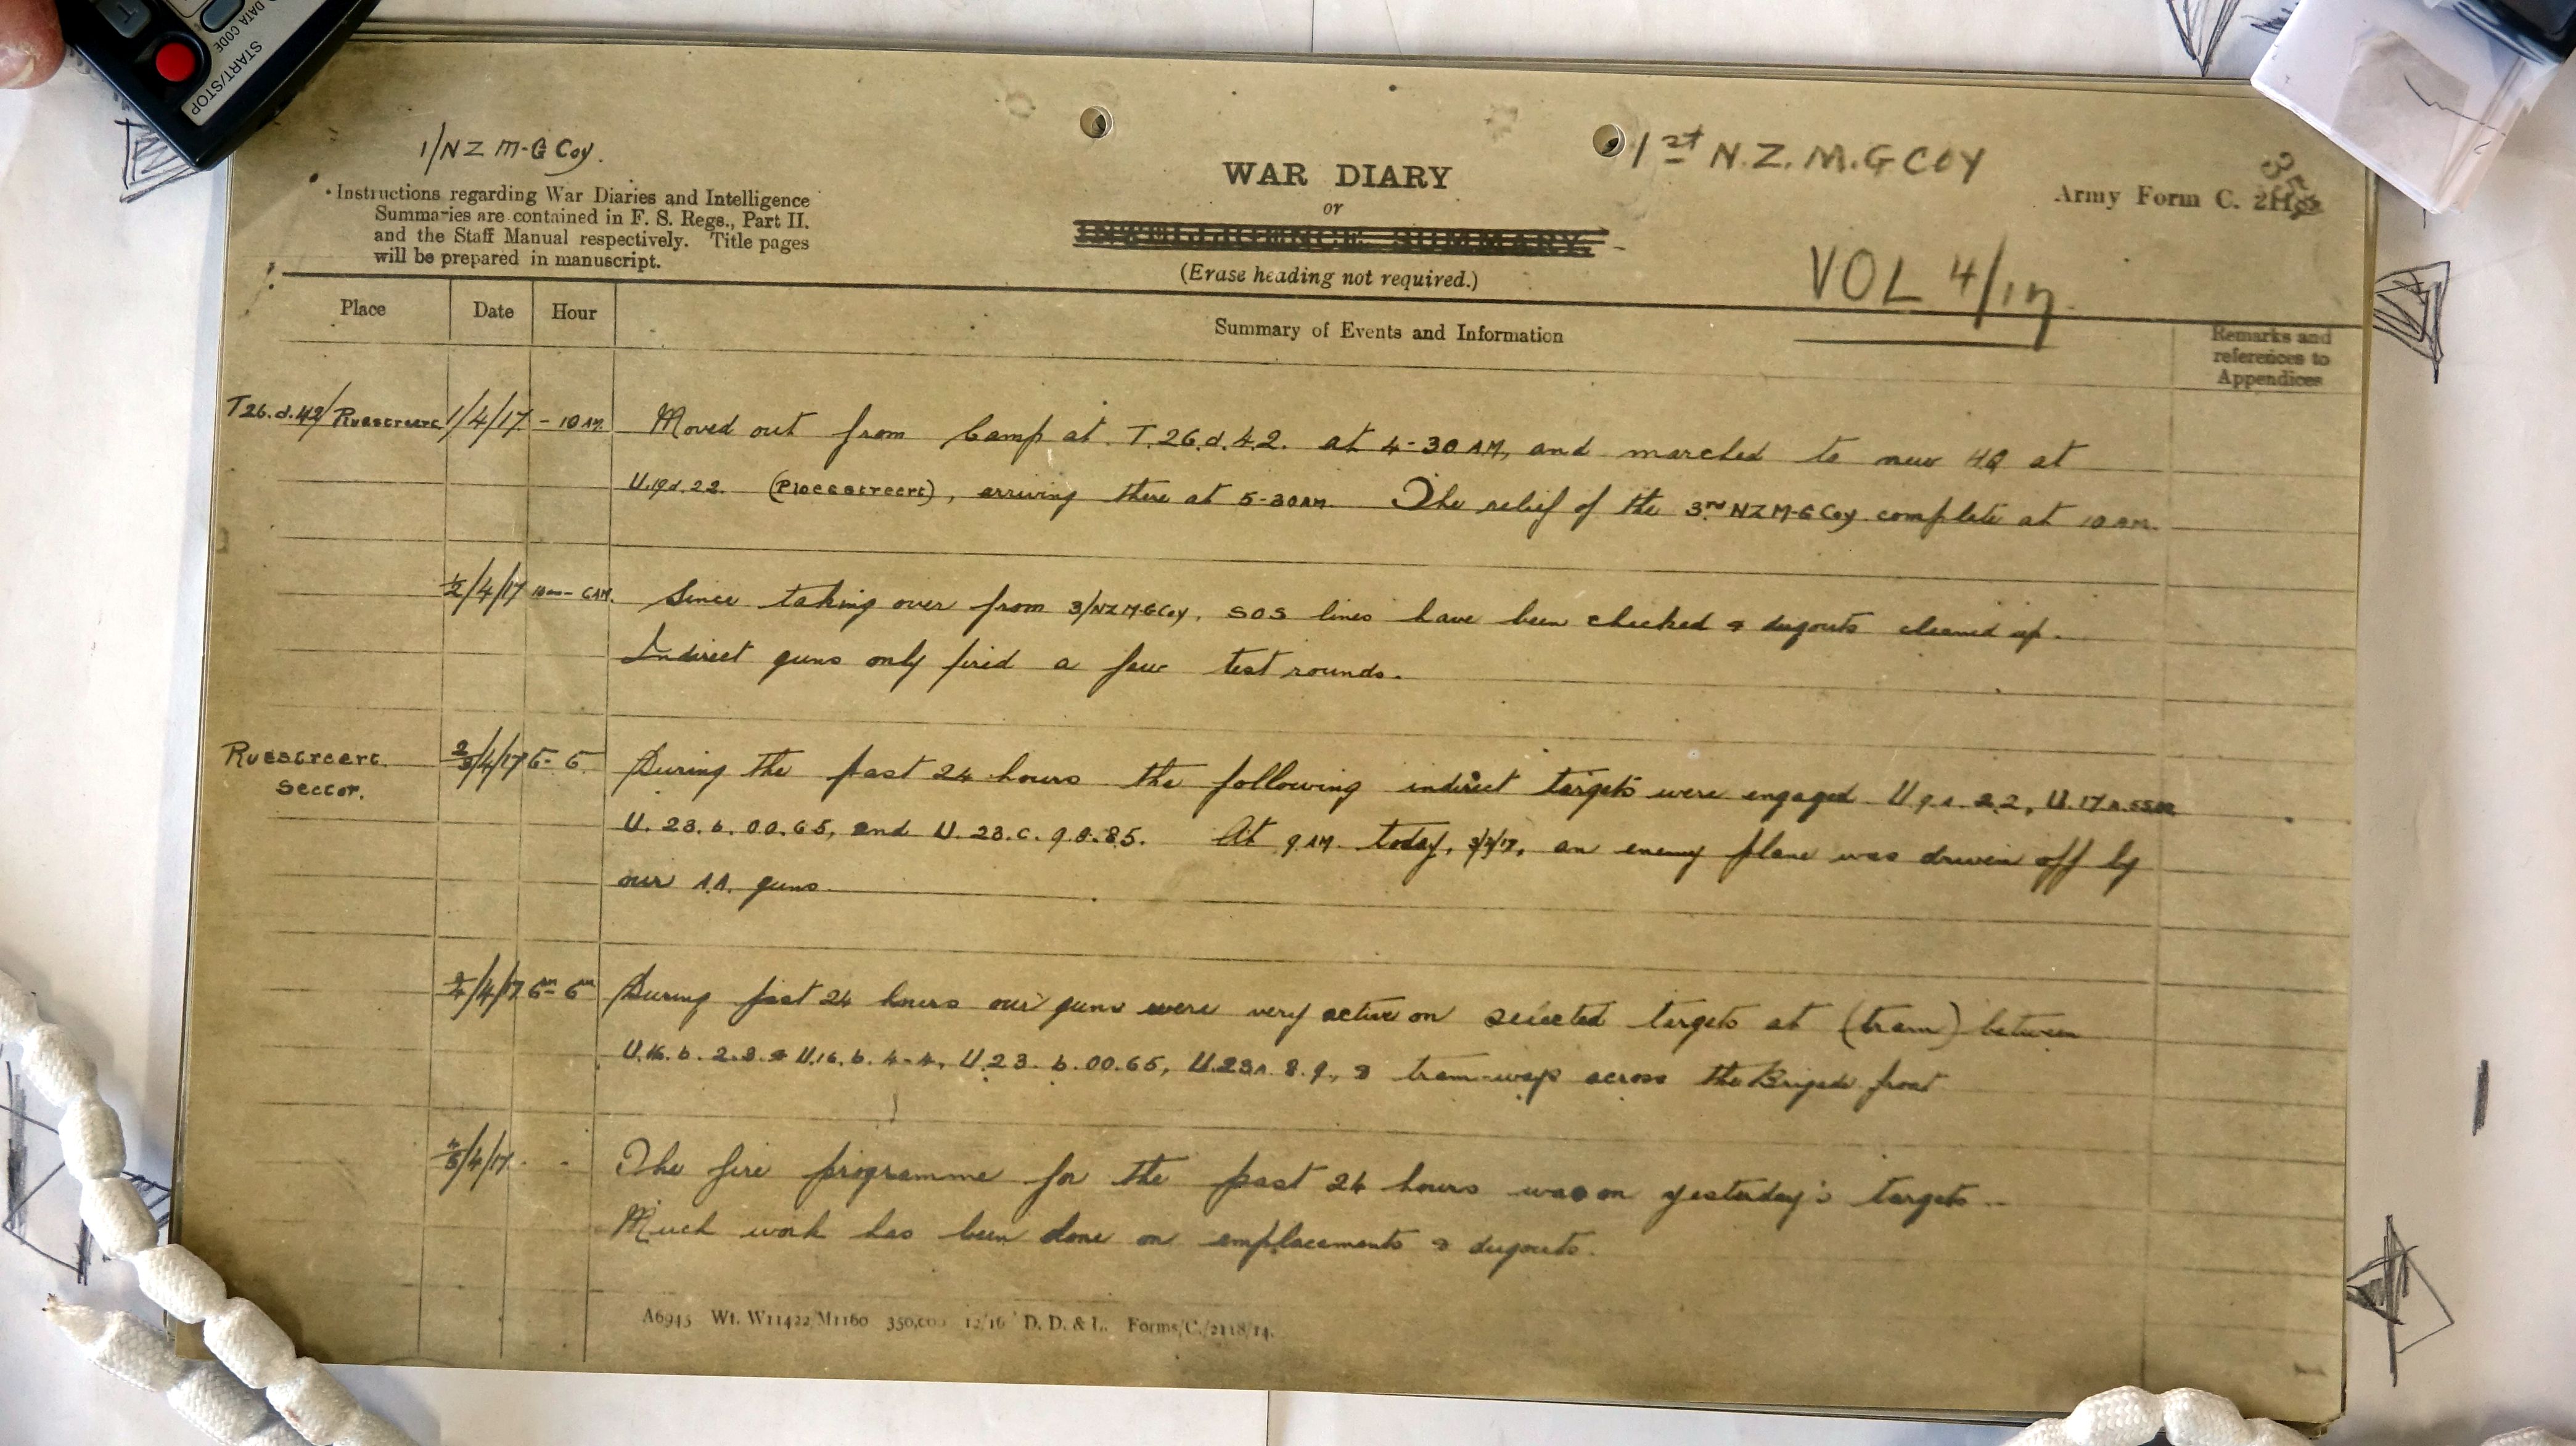 DATA CODE
START/STOP
1/NZ M-G Coy.
1st N.Z. M.G COY
Instructions regarding War Diaries and Intelligence
Summaries are contained in F. S. Regs., Part II.
and the Staff Manual respectively. Title pages
will be prepared in manuscript.
WAR DIARY
or
INTELLIGENCE SUMMARY.
(Erase heading not required.)
Army Form C.
VOL 4/17
Place Date Hour Summary of Events and Information
Remarks and
references to
Appendices
T26.d.42/ 1/4/17 - 10 AM Moved out from Camp at T.26.d.4.2. at 4-30 AM, and marched to new HQ at
U.19d.22. (Ploegsteert), arriving there at 5-30AM. The relief of the 3rd NZ M-G Coy complete at 10 AM.
1/2/4/17 10AM - 6AM. Since taking over from 3/NZ M-G Coy, SOS lines have been checked & dugouts cleaned up.
Indirect guns only fired a few test rounds.
Sector. 2/3/4/17 6 - 6 During the past 24 hours the following indirect targets were engaged U 9.A. 2.2, U.17A.
U. 23. b. 00.65, and U. 23. c. 90.85. At 9 AM. today, 3/4/17, an enemy plane was driven off by
our A.A. guns.
3/4/4/17 6AM - 6AM During past 24 hours our guns were very active on selected targets at (tram) between
U.16. b. 2.3. & U.16. b. 4-4, U.23. b. 00.65, U.23A. 8.9., & tram-ways across the Brigade front
4/5/4/17. - The fire programme for the past 24 hours was on yesterday's targets.
Much work has been done on emplacements & dugouts.
A6945 Wt. W11422/M1160 350,000 12/16 D. D. & L. Forms/C./2118/14.